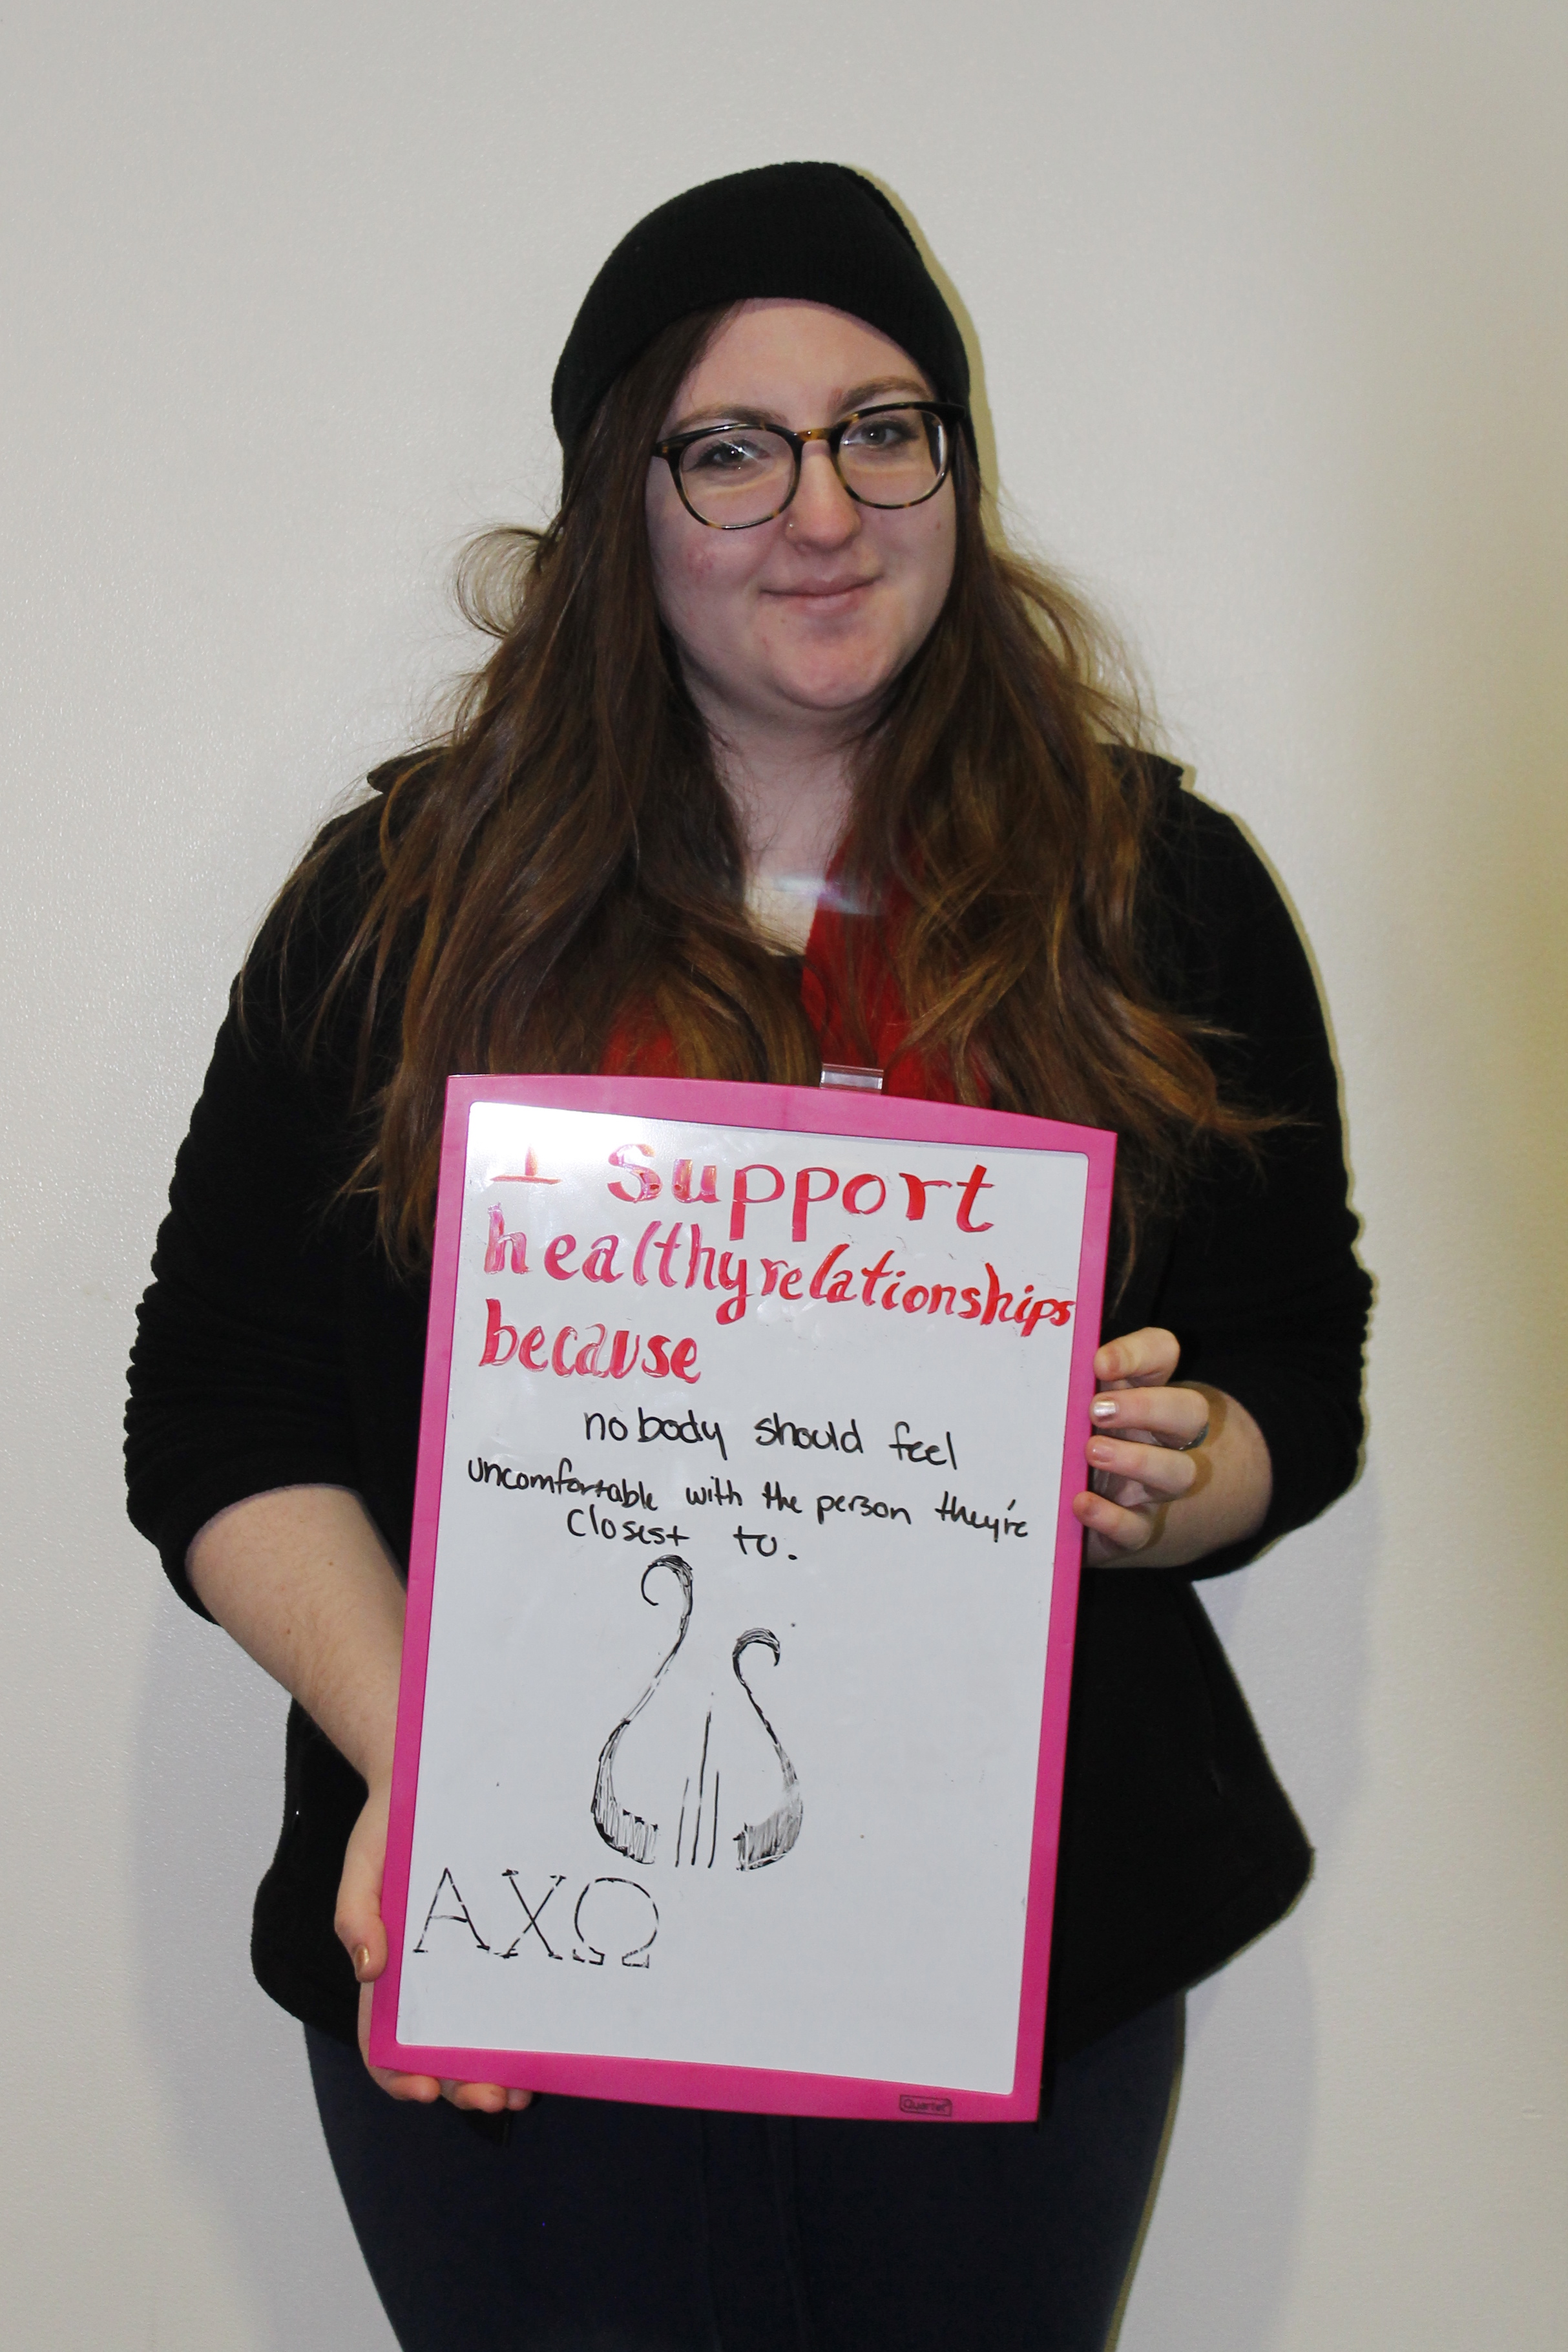 I support
healthy relationships
because
nobody should feel
uncomfortable with the person they're
closest to.
ΑΧΩ
Quartet